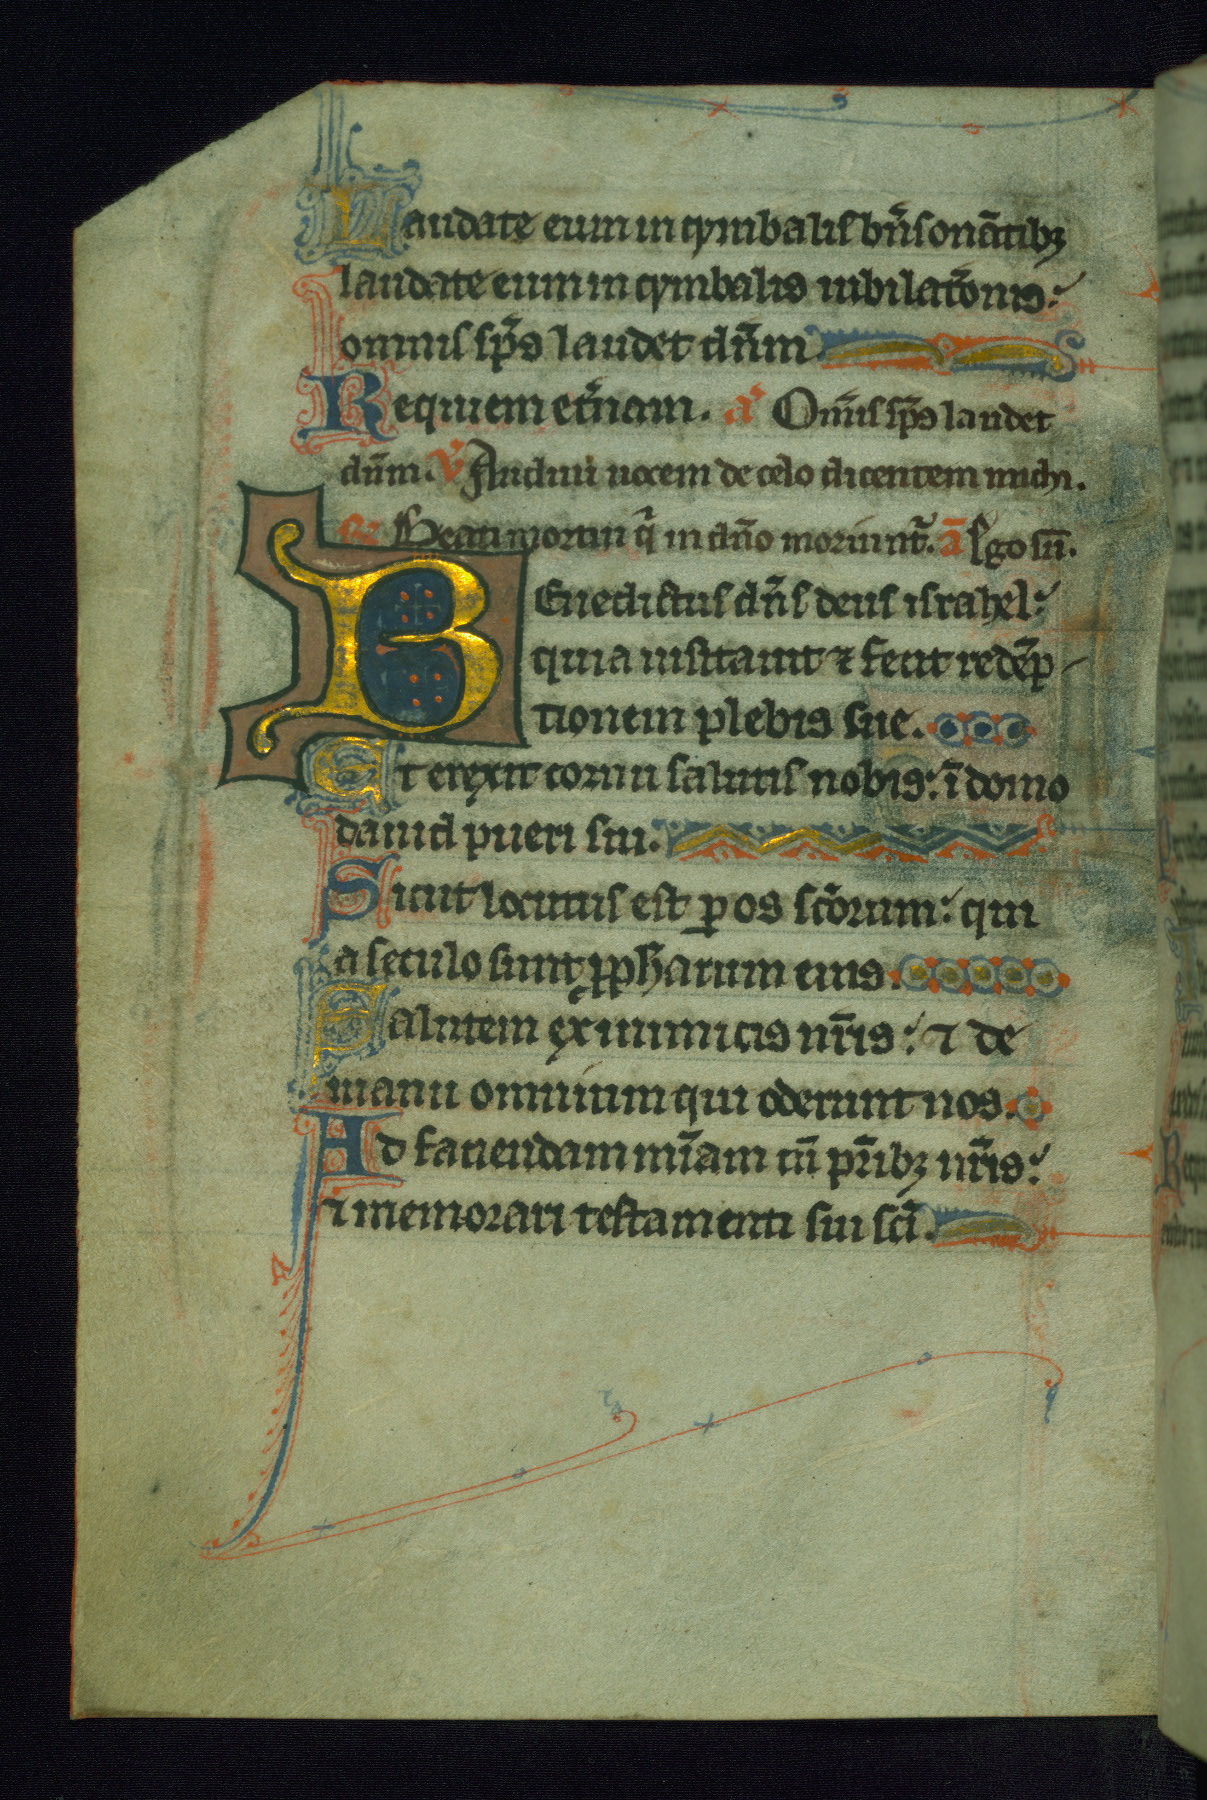 Laudate eum in cymbalis bn̄sonātibꝫ
laudate eum in cymbalis iubilat̄onis:
omnis sp̄s laudet dn̄m
Requiem et̄nam. a᷒ Om̄is sp̄s laudet
dn̄m. v᷒ Audiui uocem de celo dicentem michi.
Beati mortui q̄ in dn̄o moriunt̄. ā Ego sū.
BEnedictus dn̄s deus israhel:
quia uisitauit ⁊ fecit redēp
tionem plebis sue.
Et erexit cornu salutis nobis: ī domo
dauid pueri sui.
Sicut locutus est ꝑ os sc̄orum: qui
a seculo sunt ꝓpharum eius.
Salutem ex inimicis nr̄is: ⁊ de
manu omnium qui oderunt nos.
Ad faciendam mīam cū pr̄ibꝫ nr̄is:
⁊ memorari testamenti sui sc̄i.